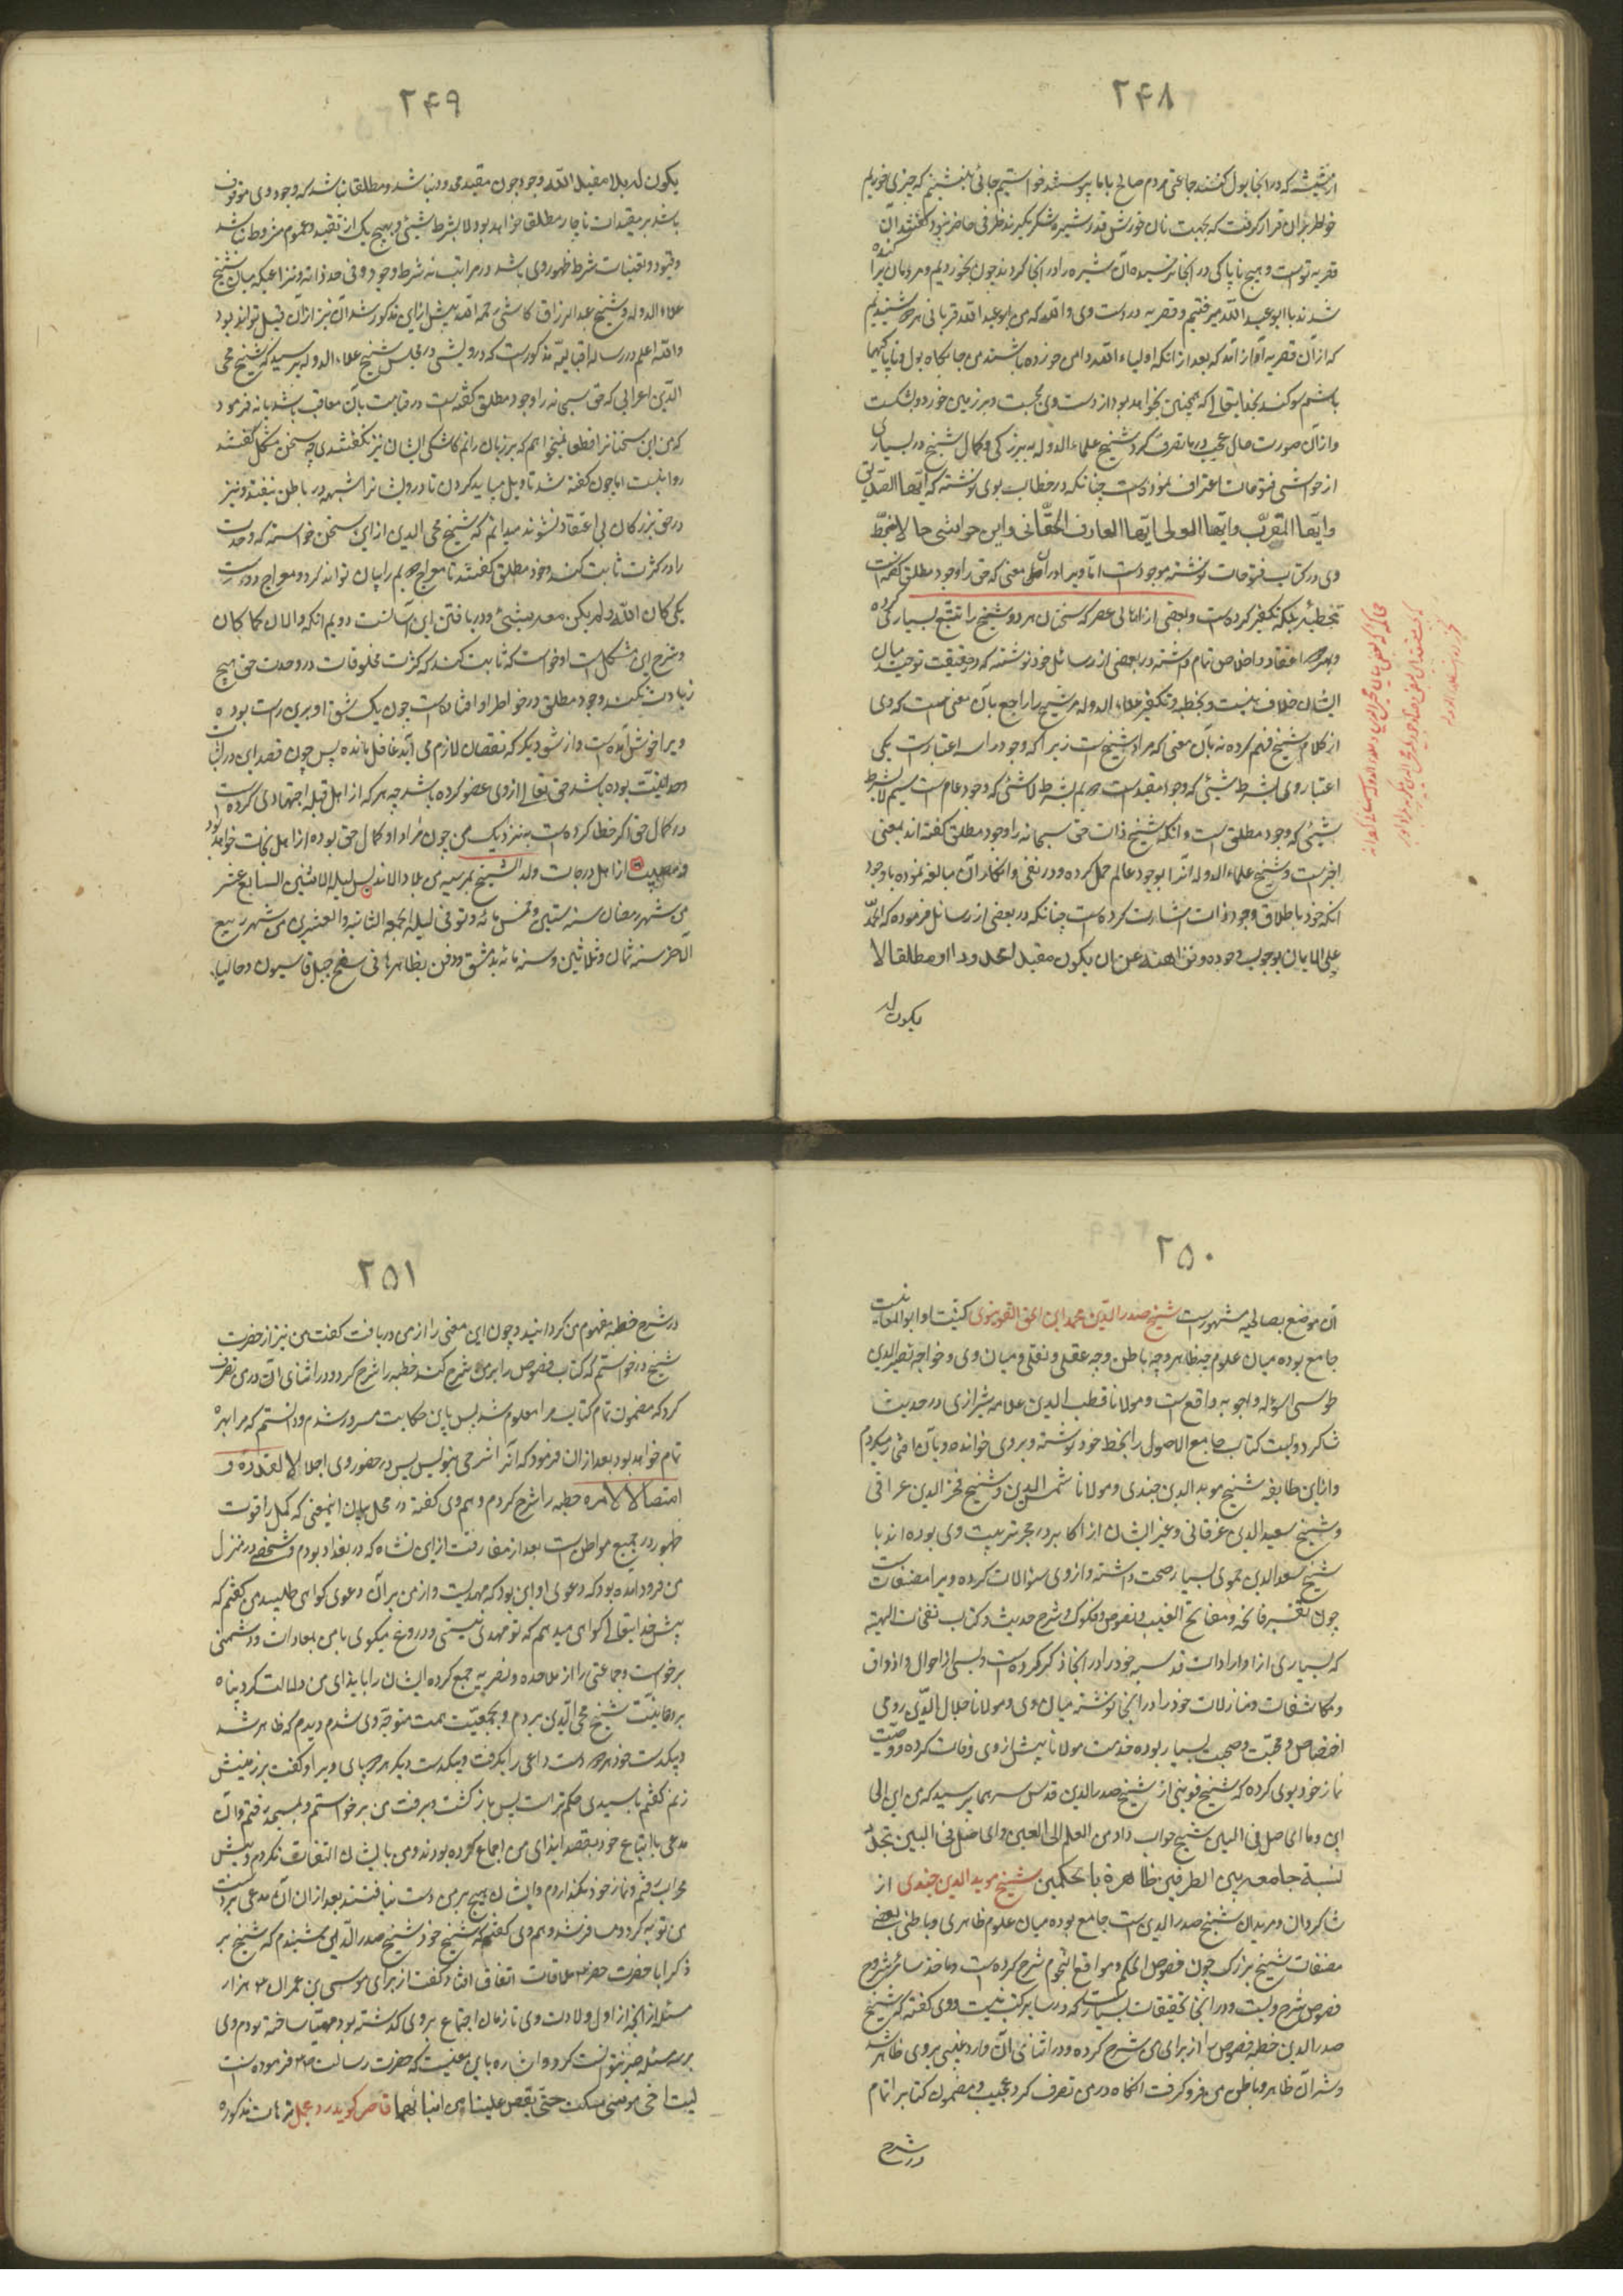 ۲۴۸
خواطر بر آن قرار گرفت که بجهت نان خورش قدر شیر و شکر بگیرند ظرفی حاضر نبود گفتند آن
قصریه نوست و هیچ ناپاکی در آنجا نرسیده آن شیره را در آنجا کردند چون بخوردیم و مردمان پرا کنده
شدند با ابو عبد الله میرفتیم و قصریه در دست وی والله که من و ابو عبد الله قربانی هر دو شنیدیم
که از آن قصریه آواز آمد که بعد از انکه اولیاء الله در من خورده باشند من جایگاه بول و ناپاکیها
باشم سوگند بخدایتعالی که همچنین نخواهد بود از دست وی بجست و بر زمین خورد و بشکست
و از آن صورت حالی عجیب در ما تصرف کرد شیخ علاء الدوله به بزرگی و کمال شیخ در بسیاری
از حواشی فتوحات اعتراف نموده است چنانکه در خطاب بوی نوشته که ایها الصدیق
وایها المقرب وایها الولی ایها العارف الحقانی واین حواشی حالا بخط
وی در کتاب فتوحات نوشته موجود است اما ویرا در آن معنی که حق را وجود مطلق گفته است
تخطئه بلکه تکفیر کرده است و بعضی از اهالی عصر که سخنان هر دو شیخ را تتبع بسیار کرده
و بهر دو اعتقاد و اخلاص تمام داشته در بعضی از رسائل خود نوشته که در حقیقت توحید میان
ایشان خلاف نیست و تخطیه و تکفیر علاء الدوله مر شیخ را راجع بآن معنی است که وی
از کلام شیخ فهم کرده نه بآن معنی که مراد شیخ است زیرا که وجود را سه اعتبار است یکی
اعتبار وی بشرط شیئی که وجود مقید است دویم بشرط لا شئی که وجود عام است سیم لا بشرط
شیئی که وجود مطلق است و آنکه شیخ ذات حق سبحانه را وجود مطلق گفته اند بمعنی
اخیر است و شیخ علاء الدوله آنرا بوجود عام حمل کرده و در نفی و انکار آن مبالغه نموده با وجود
آنکه خود باطلاق وجود ذات اشارت کرده است چنانکه در بعضی از رسائل فرموده که الحمد
علی الایمان بوجوب وجوده ونزاهته عن ان یکون مقیدا محدودا او مطلقا لا
یکون له
۲۴۹
یکون له بلا مقیداته وجود چون مقید محدود نباشد و مطلقا نباشد که وجود وی موقوف
باشد بر مقیدات ناچار مطلقا خواهد بود لا بشرط شیئی و بهیچ یک از تقید و عموم مشروط نباشد
وقیود و تعینات شرط ظهور وی باشد در مراتب نه شرط وجود وی فی حد ذاته و نزاعیکه میان شیخ
علاء الدوله و شیخ عبد الرزاق کاشی رحمه الله پیش ازاین مذکور شد آن نیز از آن قبیل تواند بود
والله اعلم در رساله اقبالیه مذکور است که درویشی در مجلس شیخ علاء الدوله پرسید که شیخ محی
الدین اعرابی که حق سبحانه را وجود مطلق گفته است در قیامت بآن معاقب باشد یا نه فرمود
که من این سخنانرا قطعا نمیخواهم که بر زبان رانم کاشکی ایشان نیز نگفتندی چه سخن مشکل گفتند
روا نیست اما چون گفته شد تاویل میباید کردن تا درویشانرا شبهه در باطن نیفتد و نیز
در حق بزرگان بی اعتقاد نشوند میدانم که شیخ محی الدین ازاین سخن خواسته که وحدت
را در کثرت ثابت کند وجود مطلق گفتند تا معراج دویم را بیان تواند کرد و معراج دو است
یکی کان الله ولم یکن معه شیئ و در یافتن این آسانست دویم آنکه والان کما کان
و شرح این مشکلست او خواست که ثابت کند که کثرت مخلوقات در وحدت حق هیچ
زیادت نکند وجود مطلق در خاطر او افتاده است چون یک شق او برین راست بوده
ویرا خوش آمده است و از شق دیگر که نقصان لازم می آید غافل مانده پس چون قصد این در اثبات
وحدانیت بوده باشد حق تعالی از وی عفو کرده باشد چه هر که از اهل قبله اجتهادی کرده است
در کمال حق اگر خطا کرده است بنزدیک من چون مراد او کمال حق بوده از اهل نجات خواهد بود
و مصیب از اهل درجات ولد الشیخ بمرسیه من بلاد الاندلس لیلة الاثنین السابع عشر
من شهر رمضان سنه ستین وخمس مائه وتوفی لیلة الجمعه الثانیه والعشرین من شهر ربیع
الاخر سنه ثمان وثلاثین وستمائه بدمشق ودفن بظاهرها فی سفح جبل قاسیون وحالیا
۲۵۰
آن موضع بصالحیه مشهور است شیخ صدر الدین محمد ابن اسحق القونیوی کنیت او ابو المعالیست
جامع بوده میان علوم چه ظاهر و چه باطن و چه عقلی و نقلی و میان وی و خواجه نصیر الدین
طوسی اسؤله و اجوبه واقع است و مولانا قطب الدین علامه شیرازی در حدیث
شاگرد ویست کتاب جامع الاصول را بخط خود نوشته و بر وی خوانده و بآن افتخار میکردم
و ازاین طایفه شیخ موید الدین جندی و مولانا شمس الدین و شیخ فخر الدین عراقی
و شیخ سعید الدین فرغانی و غیر ایشان از اکابر در حجر تربیت وی بوده اند با
شیخ سعد الدین حموی بسیار صحبت داشته و از وی سؤالات کرده ویرا مصنفات است
چون تفسیر فاتحه و مفاتیح الغیب و نصوص و فکوک و شرح حدیث و کتاب نفحات الهیه
که بسیاری از واردات قدسیه خود را در آنجا ذکر کرده است و بسی از احوال و اذواق
و مکاشفات و منازلات خود را در آنجا نوشته میان وی و مولانا جلال الدین رومی
اختصاص و محبت و صحبت بسیار بوده خدمت مولانا پیش از وی وفات کرده و وصیت
نماز خود بوی کرده که شیخ قونیوی از شیخ صدر الدین قدس سرهما پرسید که من این الی
این وما الحاصل فی البین شیخ جواب داد من العلم الی العین والحاصل فی البین تجدد
نسبة جامعه بین الطرفین ظاهرة بالحکمین شیخ موید الدین جندی از
شاگردان و مریدان شیخ صدر الدین است جامع بوده میان علوم ظاهری و باطنی بعضی
مصنفات شیخ بزرگ چون فصوص الحکم و مواقع النجوم شرح کرده است و ماخذ سائر شروح
فصوص شرح ویست و در آنجا تحقیقات بسیار است که در سایر کتب نیست و وی گفته که شیخ
صدر الدین خطبه فصوص را از برای من شرح کرده و در اثنای آن وارد غیبی بر وی ظاهر شد
و اثر آن ظاهر و باطن من فرو گرفت آنگاه در من تصرف کرد عجیب و مضمون کتاب را تمام
در شرح
۲۵۱
در شرح خطبه مفهوم من گردانید و چون این معنی را از من دریافت گفت من نیز از حضرت
شیخ در خواستم که کتاب فصوص را بر من شرح کند خطبه را شرح کرد و در اثنای آن در من تصرف
کرد که مضمون تمام کتاب مرا معلوم شد پس باین حکایت مسرور شدم و دانستم که مرا بهره
تمام خواهد بود بعد ازان فرمود که آنرا شرحی بنویس پس در حضور وی اجلالا لقدره و
امتثالا لامره خطبه را شرح کردم و هم وی گفته در محل بیان اینمعنی که کمل را قوت
ظهور در جمیع مواطن است بعد از مفارقت ازاین نشاه که در بغداد بودم و شخصی در منزل
من فرود آمده بود که دعوی او این بود که مهدیست و از من بر آن دعوی گواهی طلبید من گفتم که
پیش خدایتعالی گواهی میدهم که تو مهدی نیستی و دروغ میگوئی با من بمعادات و دشمنی
برخواست و جماعتی را از ملاحده و نصیریه جمع کرده ایشان را بایذای من دلالت کرد پناه
بروحانیت شیخ محی الدین بردم و بجمعیت همت متوجه وی شدم دیدم که ظاهر شد
و بیکدست خود هر دو دست داعی را بگرفت و بیکدست دیگر هر دو پای ویرا و گفت بر زمینش
زنم گفتم یا سیدی حکم تراست پس باز گشت و برفت من برخواستم و بمسجد رفتم و آن
مدعی با اتباع خود بقصد ایذای من اجماع کرده بودند و من با ایشان التفات نکردم و پیش
محراب رفتم و نماز خود بگذاردم و ایشان هیچ بر من دست نیافتند بعد ازان آن مدعی بر دست
من توبه کرد و مسافر شد و هم وی گفته که شیخ خود شیخ صدر الدین شنیدم که شیخ بزر
گ را با حضرت خضر ع ملاقات اتفاق افتاد گفت از برای موسی بن عمران ع هزار
مسئله از آنچه از اول ولادت وی تا زمان اجتماع بر وی گذشته بود مهیا ساخته بودم وی
بر سه مسئله صبر نتوانست کرد و اشاره باین معنیست که حضرت رسالت ص فرموده است
لیت اخی موسی سکت حتی یقص علینا من انبائهما قاصر گوید در مجمل ترهات مذکوره